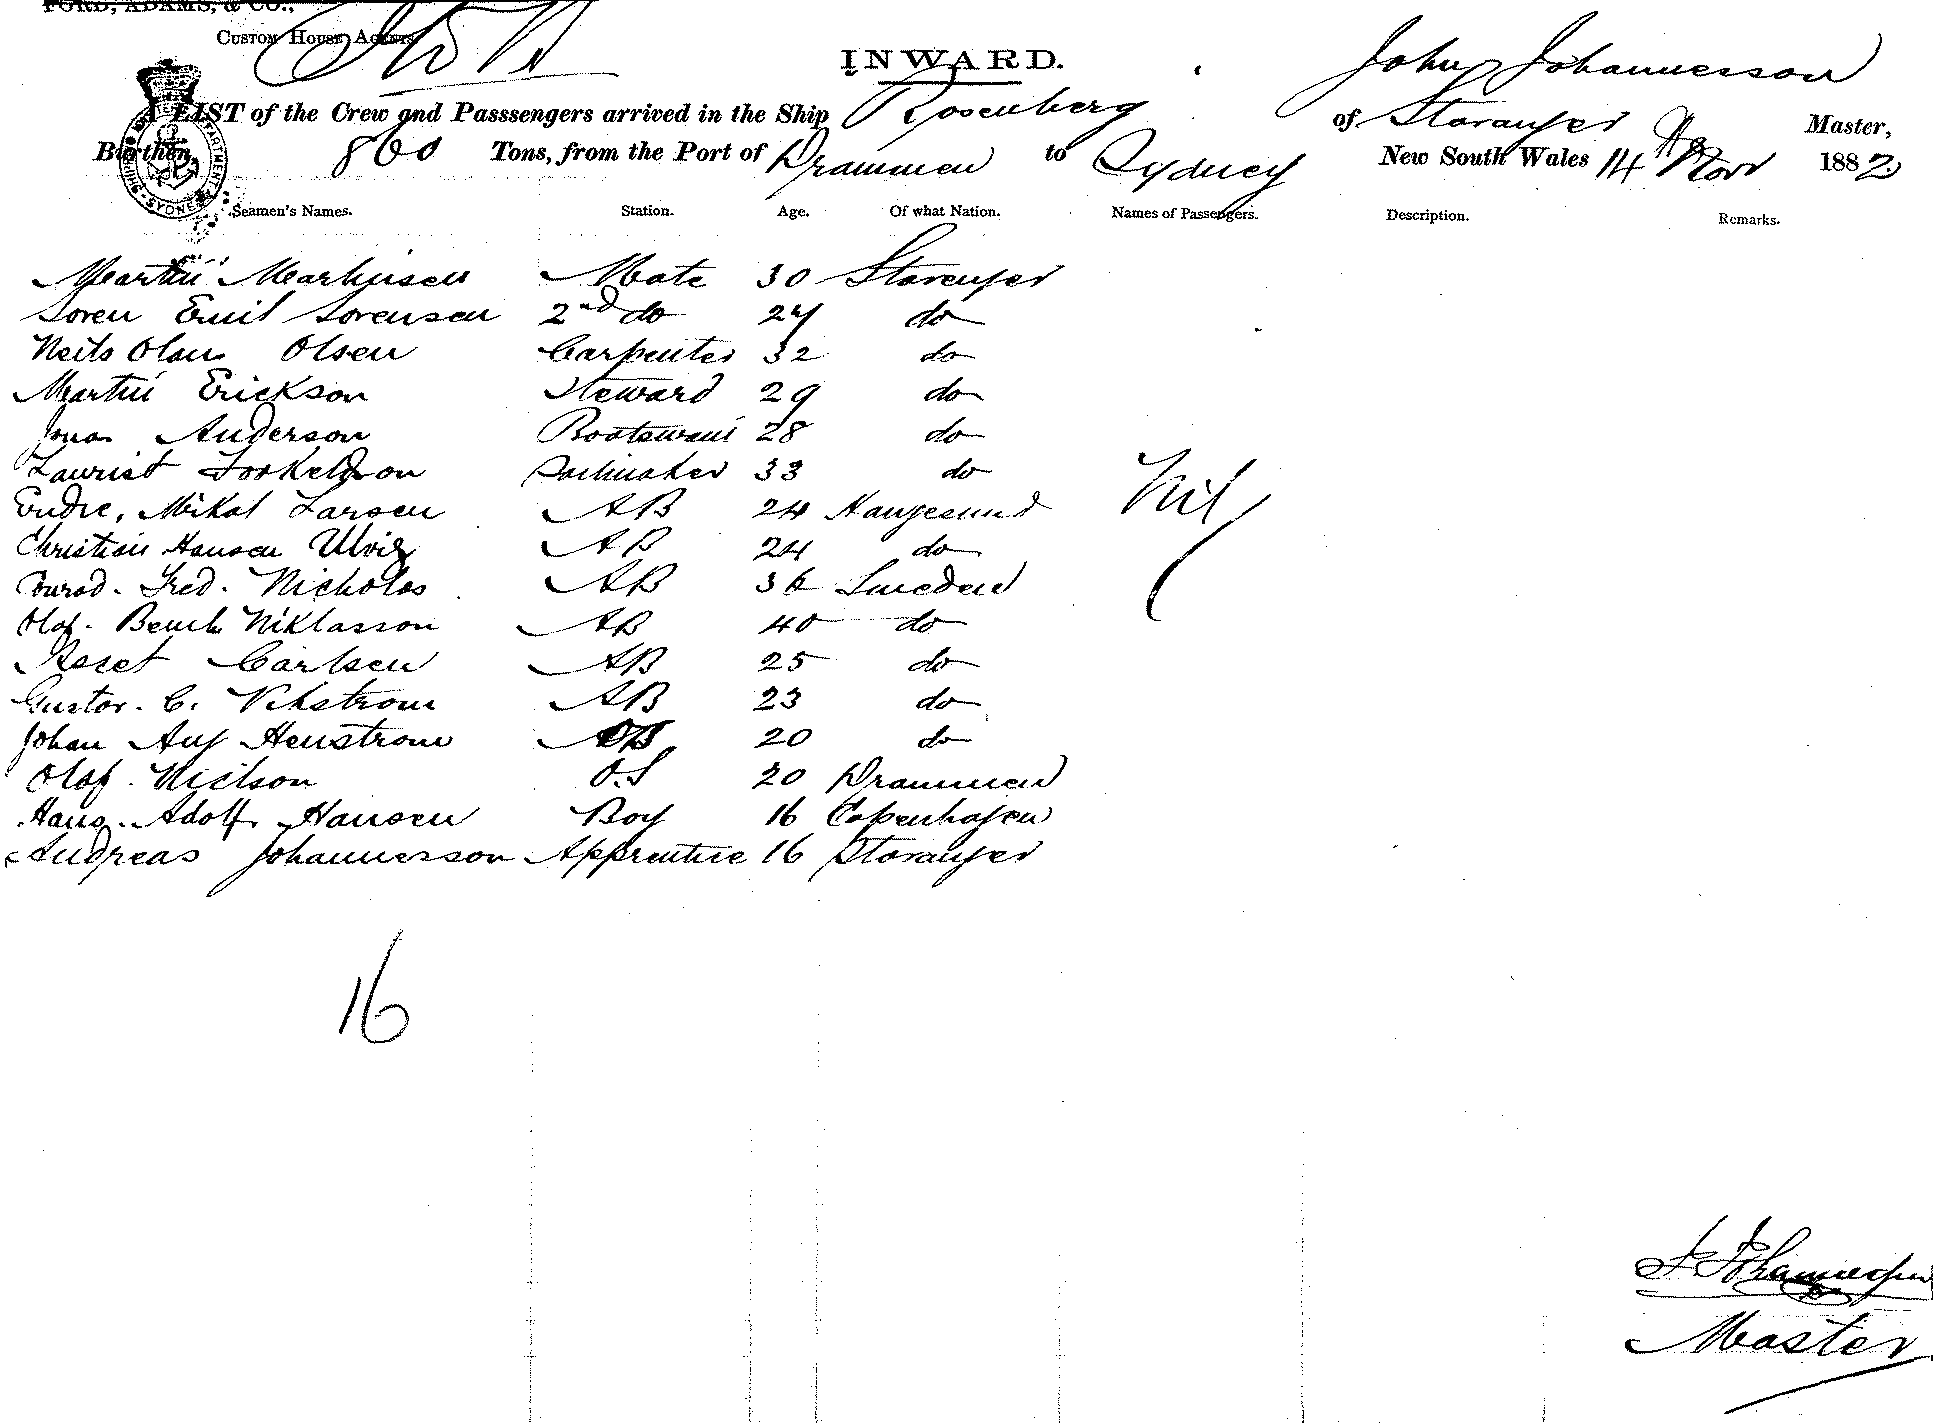 FORD, ADAMS, & CO.,
CUSTOM HOUSE AGENTS
INWARD.
John Johannesson
A LIST of the Crew and Passsengers arrived in the Ship Rosenberg of Stavanger Master,
Burthen, 860 Tons, from the Port of Drammen to Sydney New South Wales 14th Nov 1882
Seamen's Names. Station. Age. Of what Nation. Names of Passengers. Description. Remarks.
Martin Martinsen Mate 30 Stavanger
Soren Emil Sorensen 2nd do 27 do
Neils Olaus Olsen Carpenter 32 do
Martin Erickson Steward 29 do
Jonas Anderson Boatswain 28 do
Laurist Torkeldson Sailmaker 33 do
Endre, Mikal Larsen AB 24 Haugesund
Nil
Christian Hansen Ulvig AB 24 do
Conrod. Fred. Nicholas AB 36 Sweden
Olof. Niklasson AB 40 do
Carlsen AB 25 do
Gustav. C. Vikstrom AB 23 do
Johan Aug Henstrom 20 do
Olaf Nielson O.S 20 Drammen
Hans. Adolf. Hansen Boy 16 Copenhagen
Andreas Johannesson Apprentice 16 Stavanger
16
J. Johannesson
Master